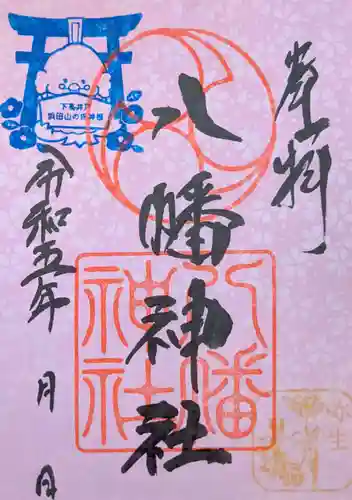 奉拝
八幡神社
令和五年 月 日
下高井戸
浜田山の氏神様
八幡
神社
弥生